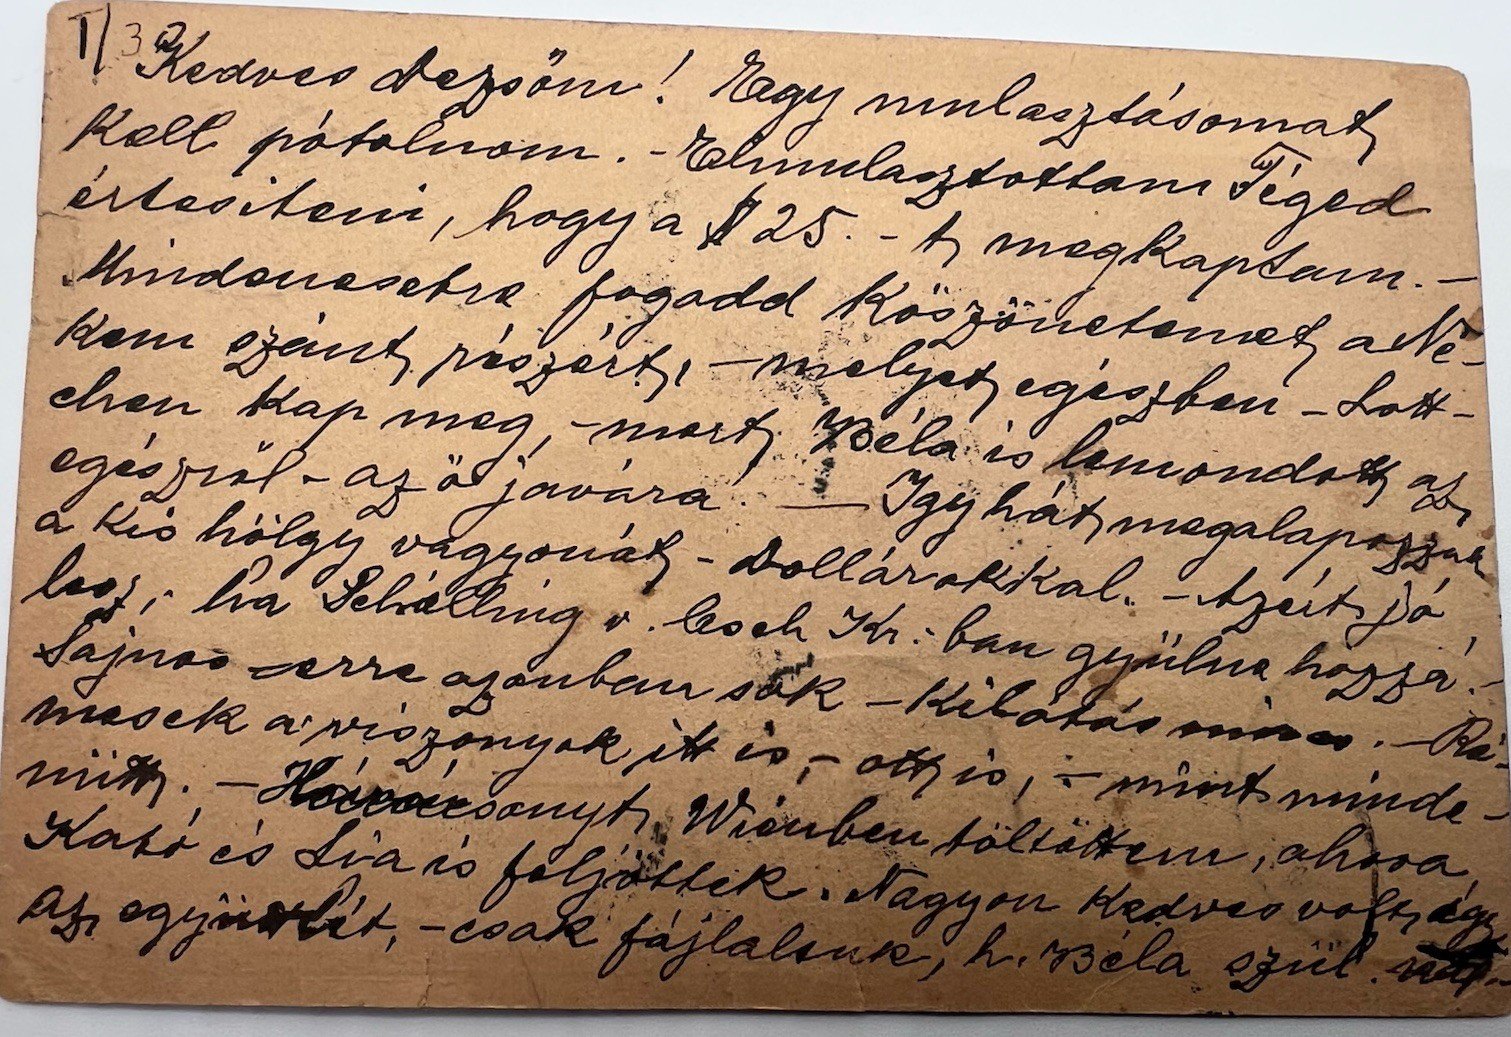 I/3
Kedves Dezsőm! Egy mulasztásomat
kell pótolnom. - Elmulasztottam Téged
értesiteni, hogy a $ 25.-t megkaptam. -
Mindenesetre fogadd köszönetemet a Ne-
kem szánt részért, - melyet egészben - Lott-
chen kap meg, - mert Béla is lemondott az
egészről - az ő javára. — Igy hát megalapozzuk
a kis hölgy vagyonát - Dollárokkal. - Azért jó
lesz, ha Schilling v. Csch Kr.-ban gyülne hozzá. -
Sajnos erre azonban sok - kilátás nincs. - Re-
mesek a viszonyok itt is, - ott is, - mint minde-
nütt. - Karácsonyt Wienben töltöttem, ahova
Kató és Lia is feljöttek. Nagyon kedves volt így
az együttlét, - csak fájlaltuk, h. Béla szül. nap-